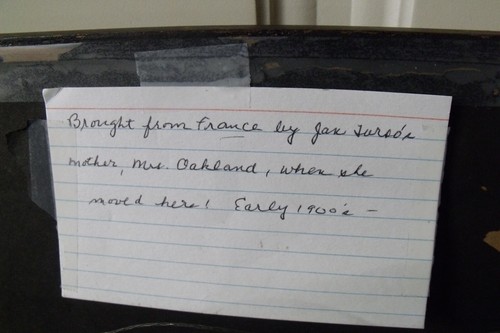 Brought from France by Jax Turso's
mother, Mrs. Oakland, when she
moved here! Early 1900's -